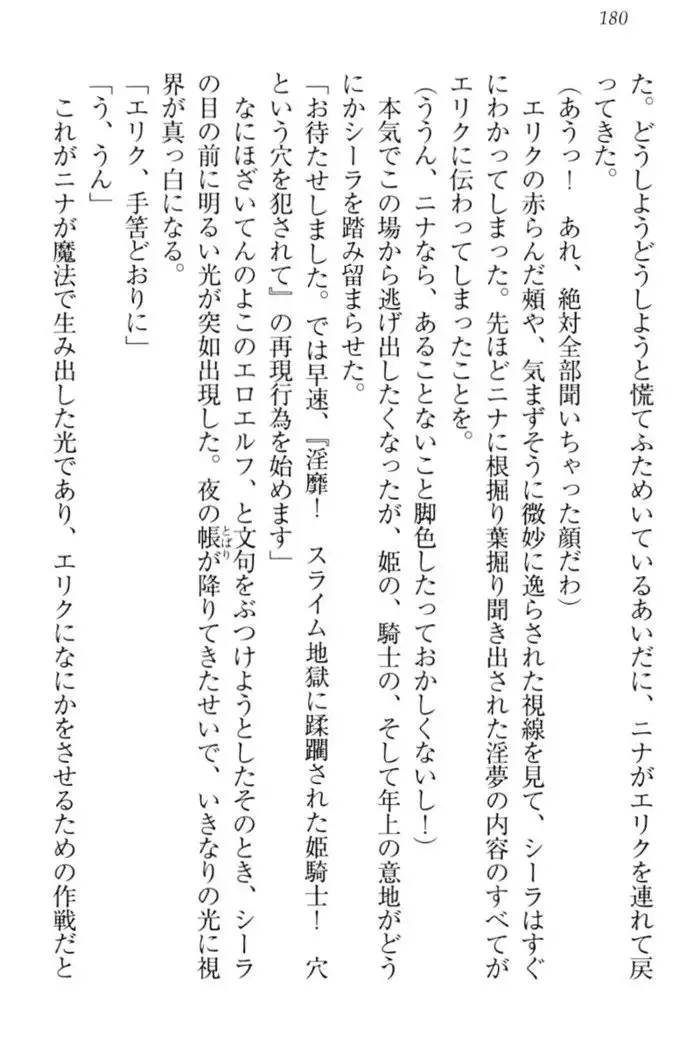 180
た。どうしようどうしようと慌てふためいているあいだに、ニナがエリクを連れて戻
ってきた。
(あうっ！　あれ、絶対全部聞いちゃった顔だわ)
　エリクの赤らんだ頰や、気まずそうに微妙に逸らされた視線を見て、シーラはすぐ
にわかってしまった。先ほどニナに根掘り葉掘り聞き出された淫夢の内容のすべてが
エリクに伝わってしまったことを。
(ううん、ニナなら、あることないこと脚色したっておかしくないし！)
　本気でこの場から逃げ出したくなったが、姫の、騎士の、そして年上の意地がどう
にかシーラを踏み留まらせた。
「お待たせしました。では早速、『淫靡！　スライム地獄に蹂躙された姫騎士！　穴
という穴を犯されて』の再現行為を始めます」
　なにほざいてんのよこのエロエルフ、と文句をぶつけようとしたそのとき、シーラ
の目の前に明るい光が突如出現した。夜の帳とばりが降りてきたせいで、いきなりの光に視
界が真っ白になる。
「エリク、手筈どおりに」
「う、うん」
　これがニナが魔法で生み出した光であり、エリクになにかをさせるための作戦だと